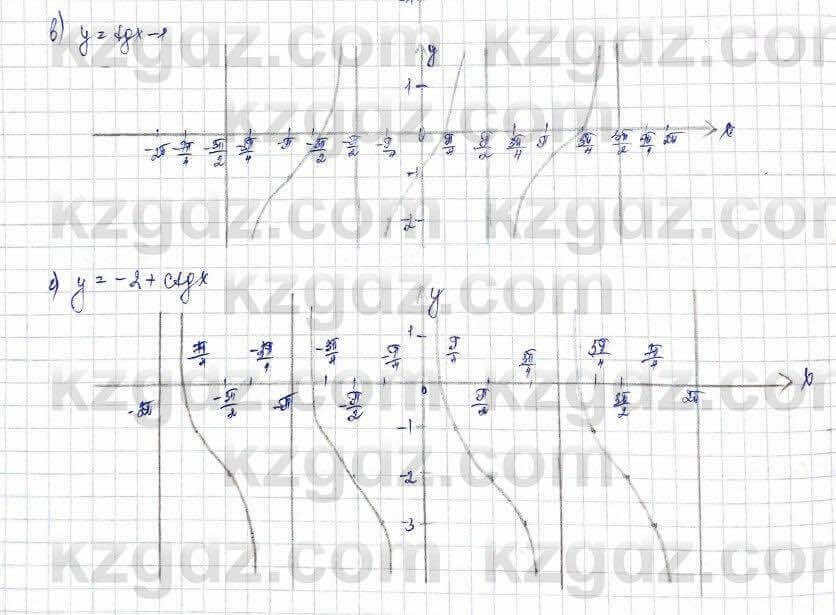 в) y = tgx - 1
y
1
x
-2π -7π/4 -3π/2 -5π/4 -π -3π/2 -π/2 -π/4 0 π/4 π/2 3π/4 π 5π/4 3π/2 7π/4 2π
-1
-2
y = -2 + ctgx
y
1
7π/4 -5π/4 -3π/4 -π/4 π/4 3π/4 5π/4 7π/4
x
-2π -3π/2 -π -π/2 0 π/2 3π/2 2π
-1
-2
-3
kzgdz.com